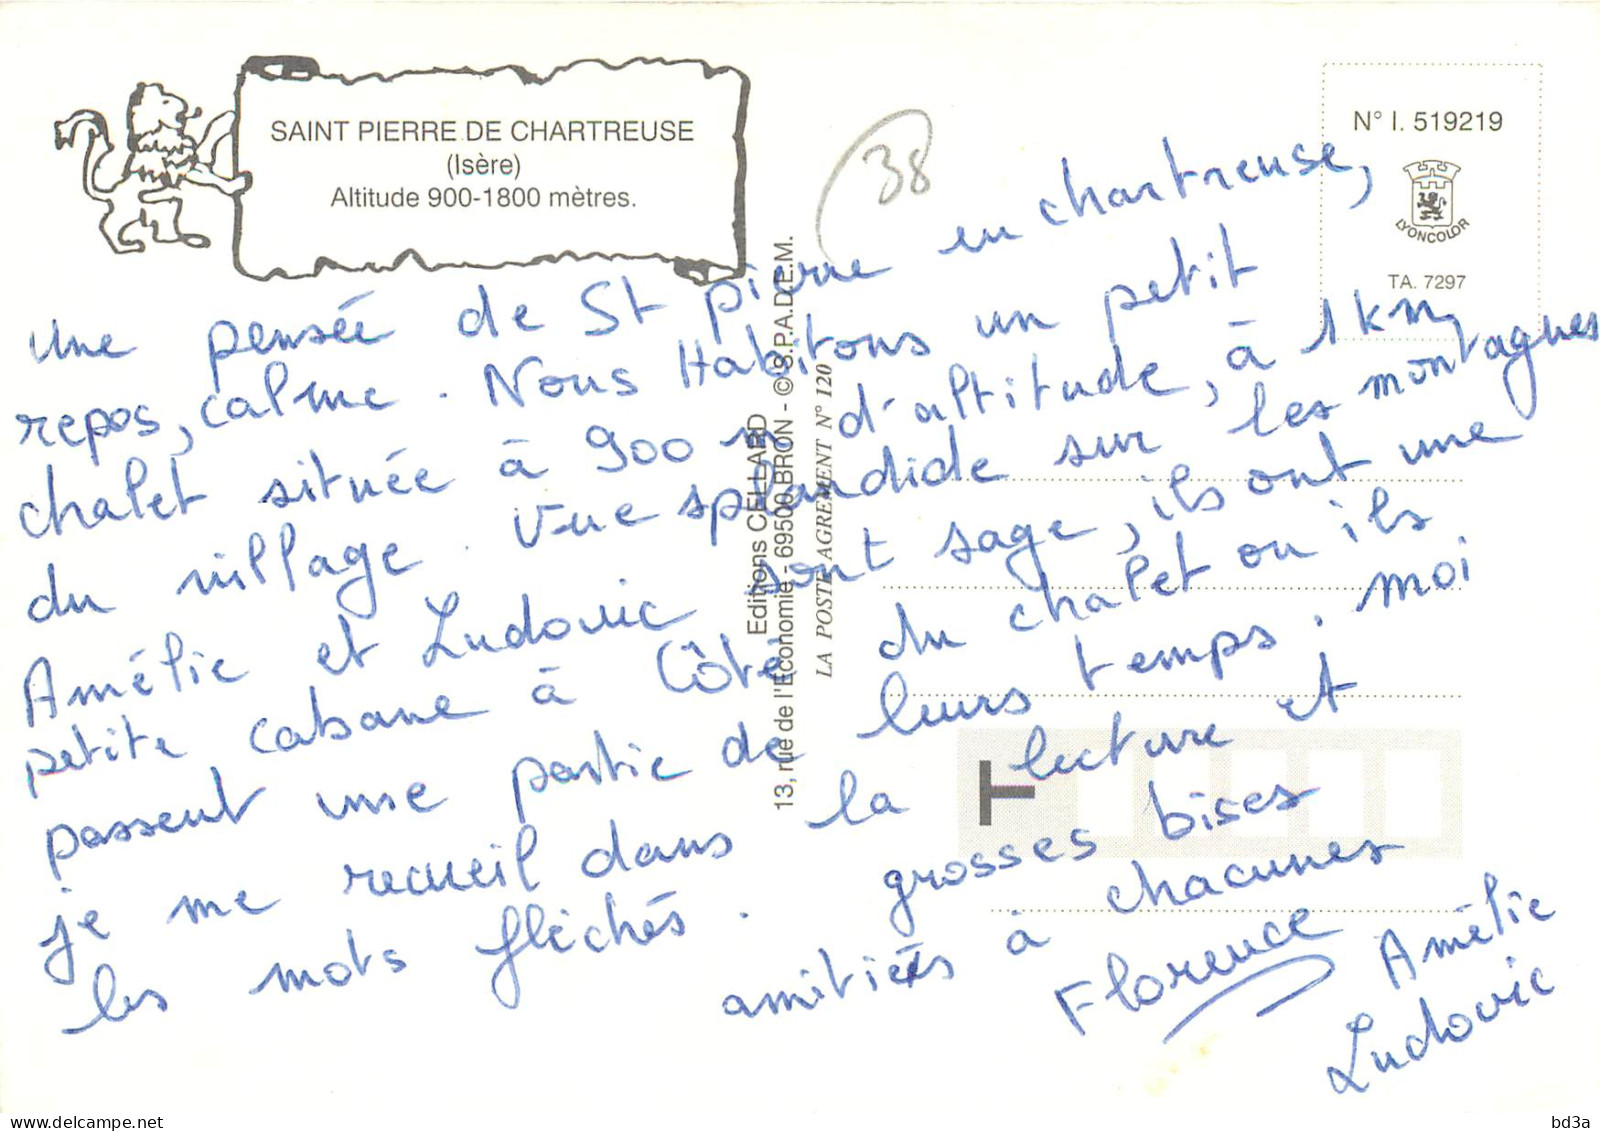 SAINT PIERRE DE CHARTREUSE
(Isère)
Altitude 900-1800 mètres.
38
N° I. 519219
LYONCOLOR
TA. 7297
Editions CELLARD
13, rue de l'Economie - 69500 BRON - © S.P.A.D.E.M.
LA POSTE AGREMENT N° 120
T
une pensée de St pierre en chartreuse,
repos, calme. Nous Habitons un petit
chalet située à 900 m d'altitude, à 1 km
du village. Vue splandide sur les montagnes
Amélie et Ludovic sont sage, ils ont une
petite cabane à Côté du chalet ou ils
passent une partie de leurs temps. Moi
je me recueil dans la lecture et
les mots fléchés. grosses bises
amitiés à chacunes
Florence Amélie
Ludovic
bd3a